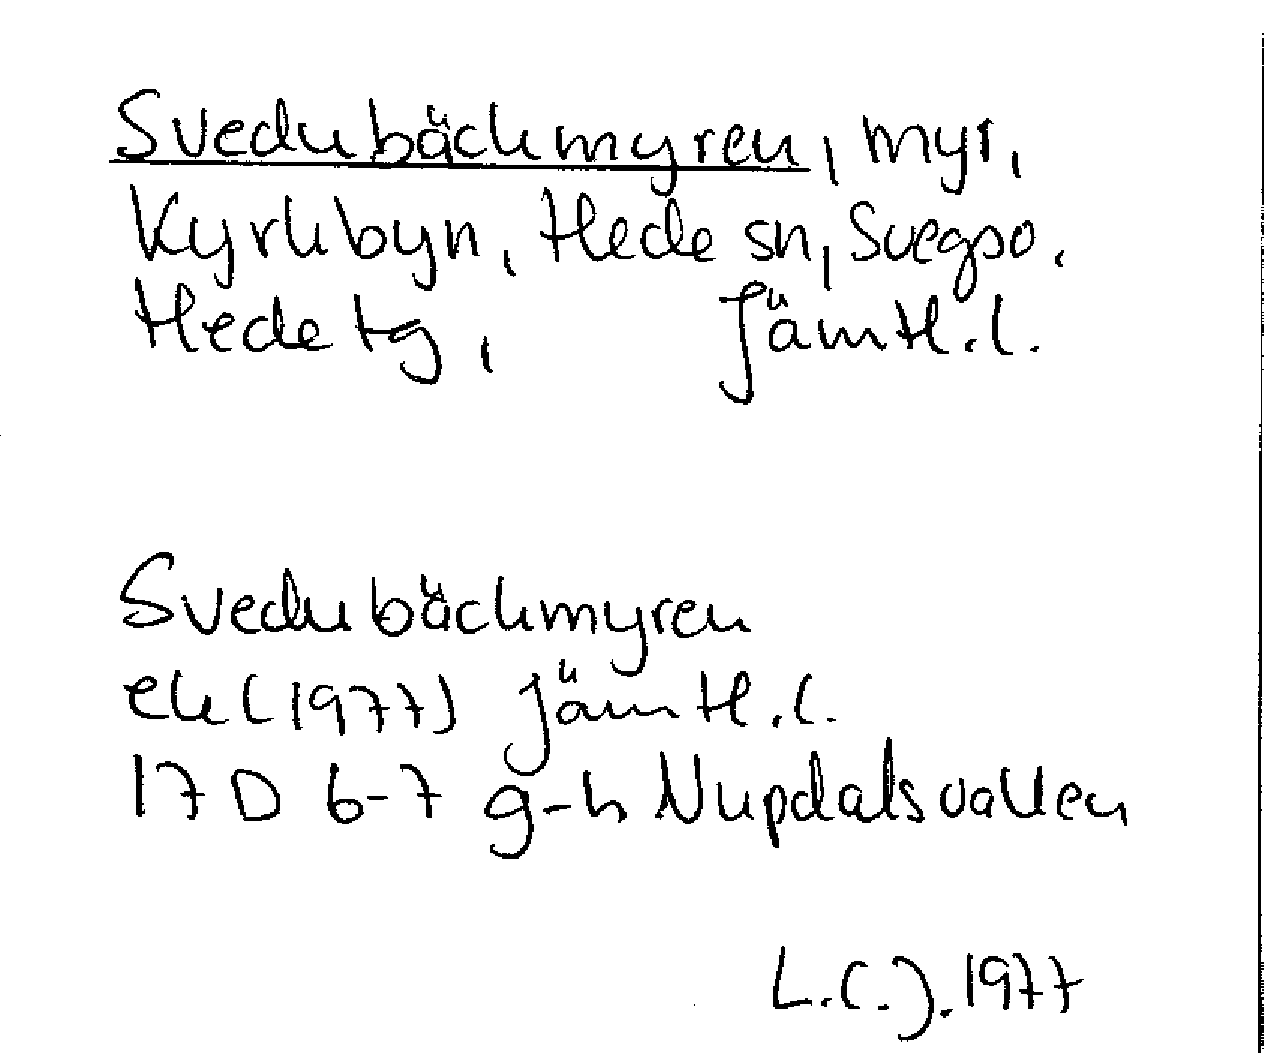 Svedubäckmyren, myr,
Kyrkbyn, Hede sn, Svegs po.
Hede tg, Jämtl.l.
Svedubäckmyren
ek (1977) Jämtl.l.
17 D 6-7 g-h Nupdalsvallen
L.C.J. 1977